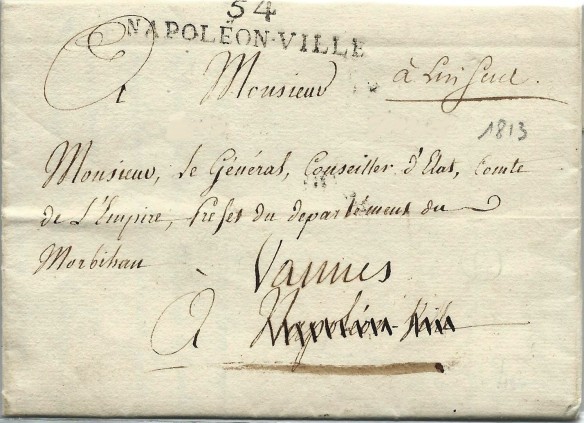 54
NAPOLÉON-VILLE
A Monsieur
à lui seul.
1813
Monsieur, le Général, Conseiller d'Etat, Comte
de L'Empire, Prefet du departement du
Morbihan
Vannes
À Napoléon-Ville